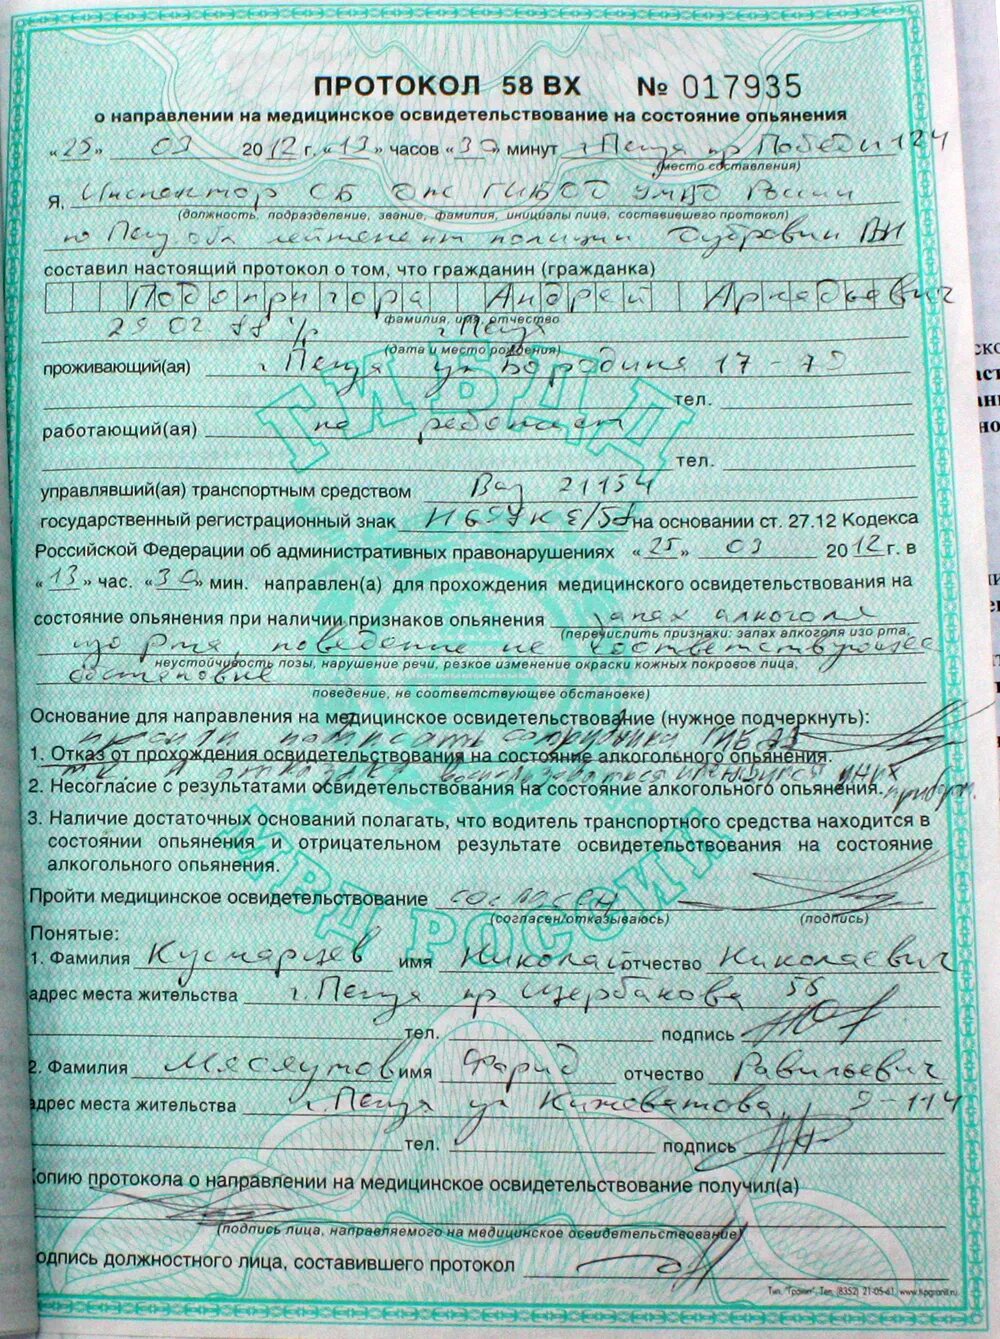 ПРОТОКОЛ 58 ВХ № 017935
о направлении на медицинское освидетельствование на состояние опьянения
«25» 03 2012 г. «13» часов «30» минут г. Пенза пр Победы 124
(место составления)
Я, Инспектор СБ ДПС ГИБДД УМВД России
(должность, подразделение, звание, фамилия, инициалы лица, составившего протокол)
по Пенз обл лейтенант полиции Дубровин
составил настоящий протокол о том, что гражданин (гражданка)
Подопригора Андрей Аркадьевич
фамилия, имя, отчество
29 02 88 г/р г. Пенза
(дата и место рождения)
проживающий(ая) г. Пенза ул Бородина 17 - 79
тел.
работающий(ая) не работает
тел.
управлявший(ая) транспортным средством Ваз 21154
государственный регистрационный знак на основании ст. 27.12 Кодекса
Российской Федерации об административных правонарушениях «25» 03 2012 г. в
«13» час. «30» мин. направлен(а) для прохождения медицинского освидетельствования на
состояние опьянения при наличии признаков опьянения запах алкоголя
(перечислить признаки: запах алкоголя изо рта,
изо рта, поведение не соответствующее
неустойчивость позы, нарушение речи, резкое изменение окраски кожных покровов лица,
обстановке
поведение, не соответствующее обстановке)
Основание для направления на медицинское освидетельствование (нужное подчеркнуть):
написать сотрудники ГИБДД
1. Отказ от прохождения освидетельствования на состояние алкогольного опьянения.
воспользоваться у них прибором.
2. Несогласие с результатами освидетельствования на состояние алкогольного опьянения.
3. Наличие достаточных оснований полагать, что водитель транспортного средства находится в
состоянии опьянения и отрицательном результате освидетельствования на состояние
алкогольного опьянения.
Пройти медицинское освидетельствование согласен
(согласен/отказываюсь) (подпись)
Понятые:
1. Фамилия Кусмарцев имя Николай отчество Николаевич
адрес места жительства г. Пенза пр Щербакова 55
тел. подпись
2. Фамилия имя Фарид отчество Равильевич
адрес места жительства г. Пенза ул Кижеватова 9-114
тел. подпись
Копию протокола о направлении на медицинское освидетельствование получил(а)
(подпись лица, направляемого на медицинское освидетельствование)
подпись должностного лица, составившего протокол
Тип. "Гранит". Тел. (8352) 21-05-61, www.tipgranit.ru.
ГИБДД
МВД РОССИИ